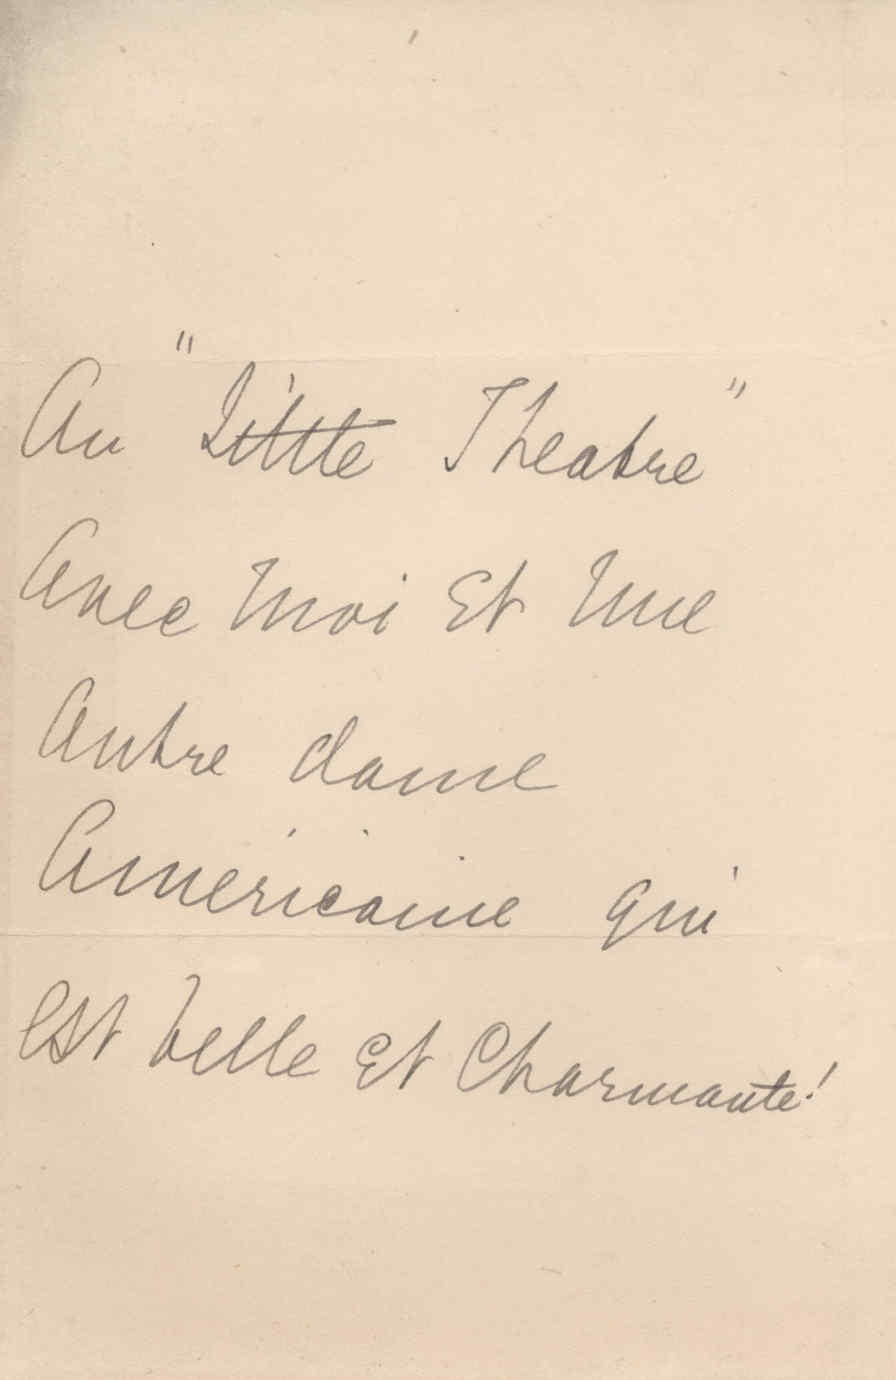 Au "Little Theatre"
Avec Moi Et Une
Autre dame
Américaine qui
Est belle Et Charmante!